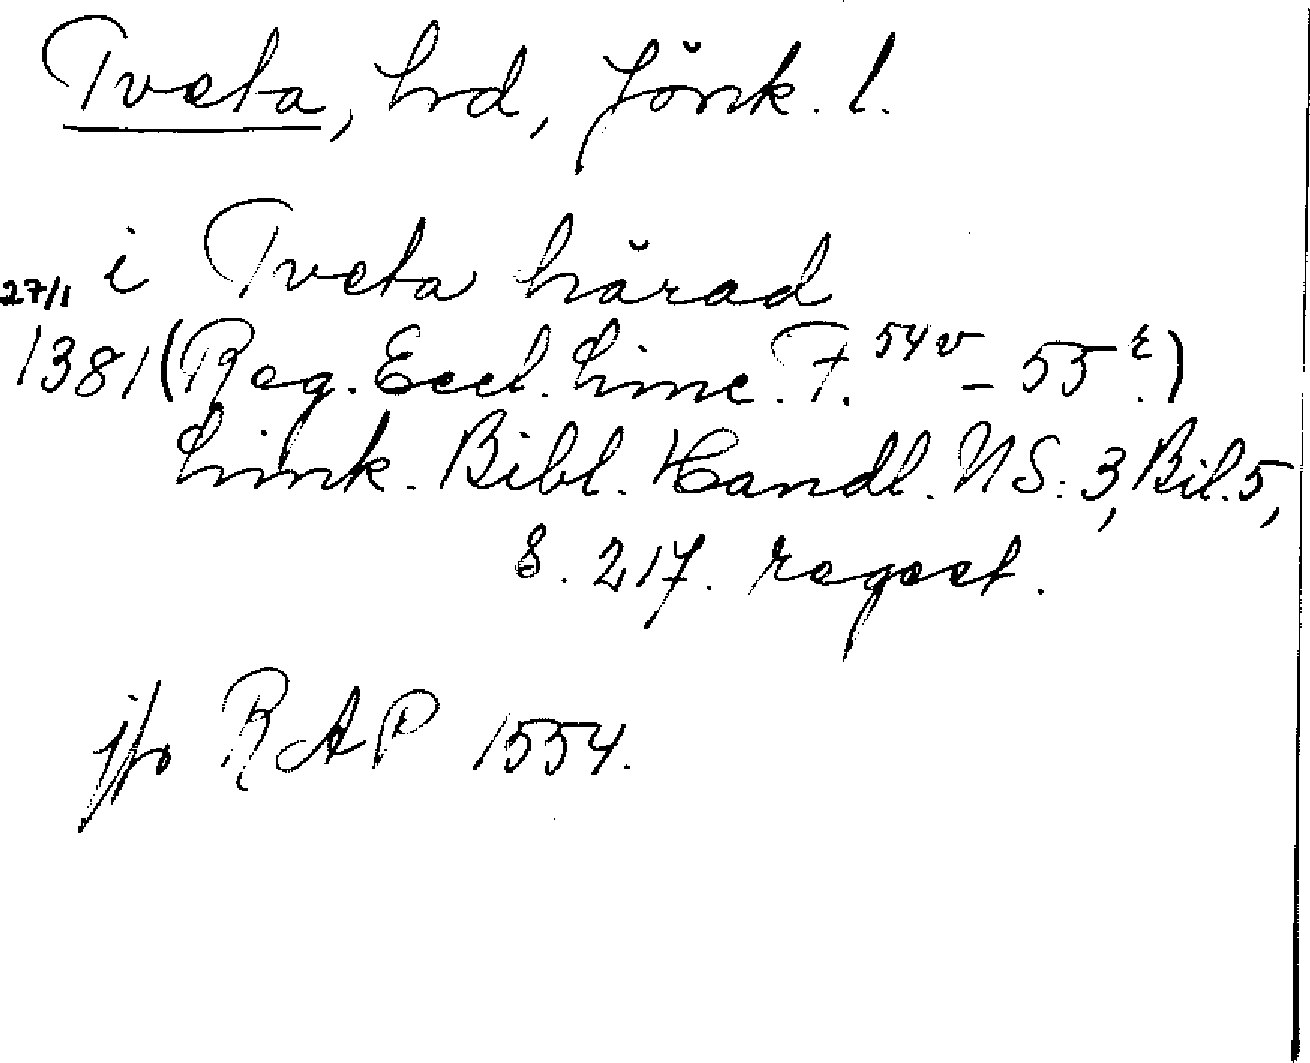 Tveta, hd, Jönk. l.
i Tveta härad
27/1
1381 (Reg. Eccl. Linc. F. 54v - 55r.)
Link. Bibl. Handl. NS: 3, Bil. 5,
S. 217. regest.
jfr RAP 1554.